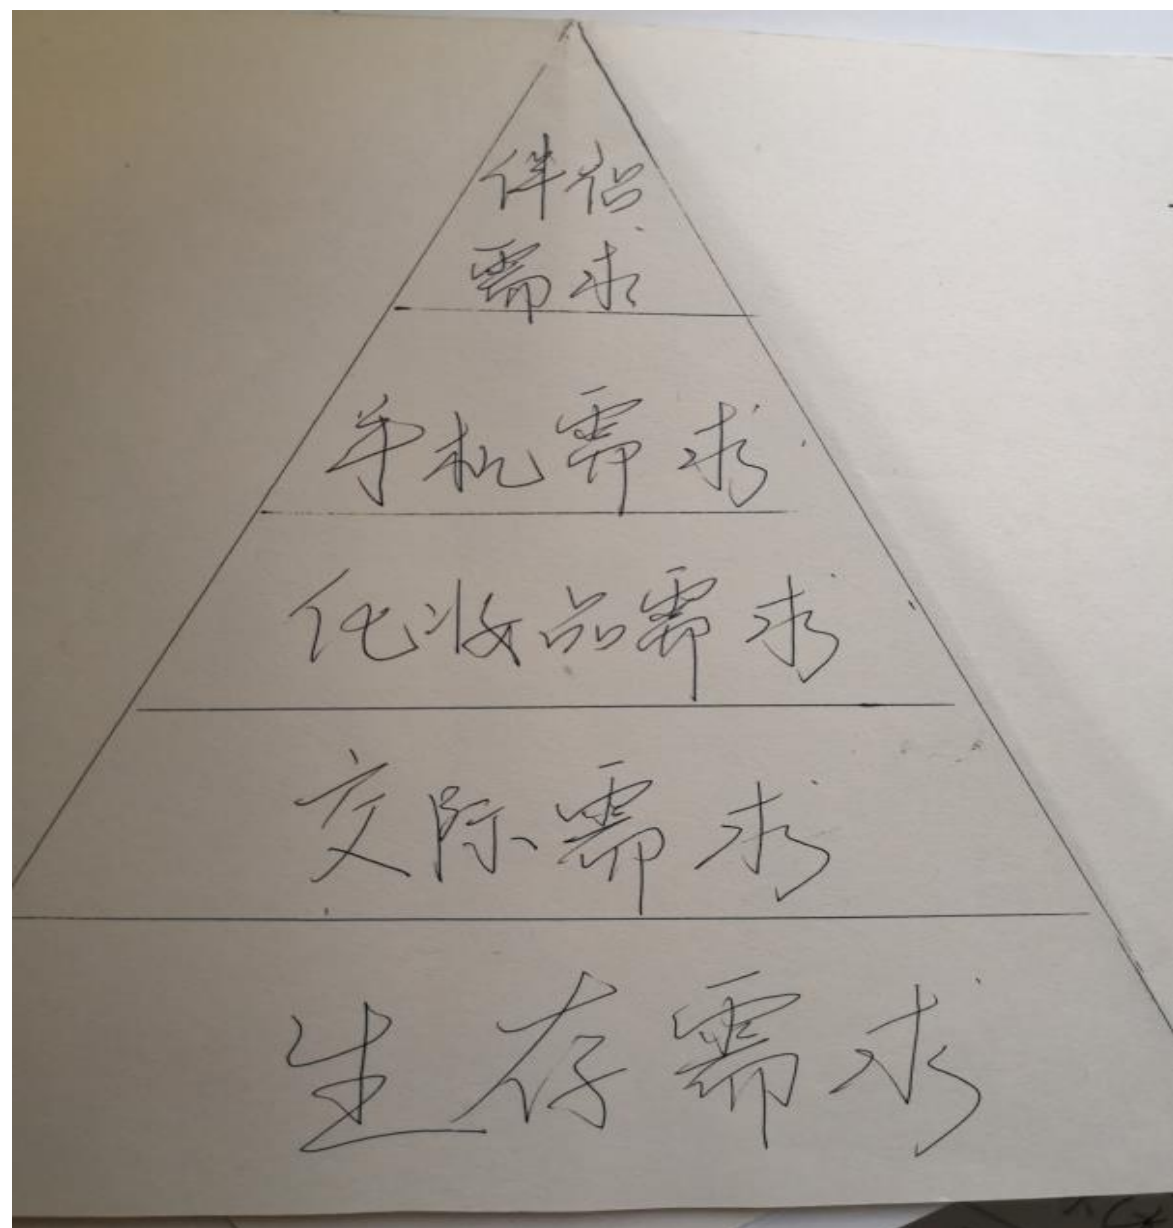 伴侣
需求
手机需求
化妆品需求
交际需求
生存需求